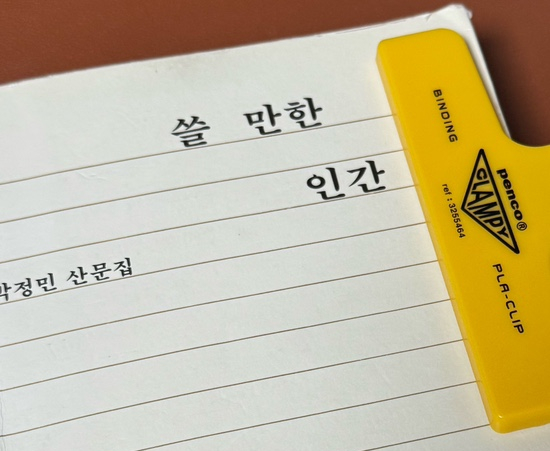 쓸 만한
인간
박정민 산문집
BINDING
penco®
CLAMPY
ref : 3255464
PLA-CLIP